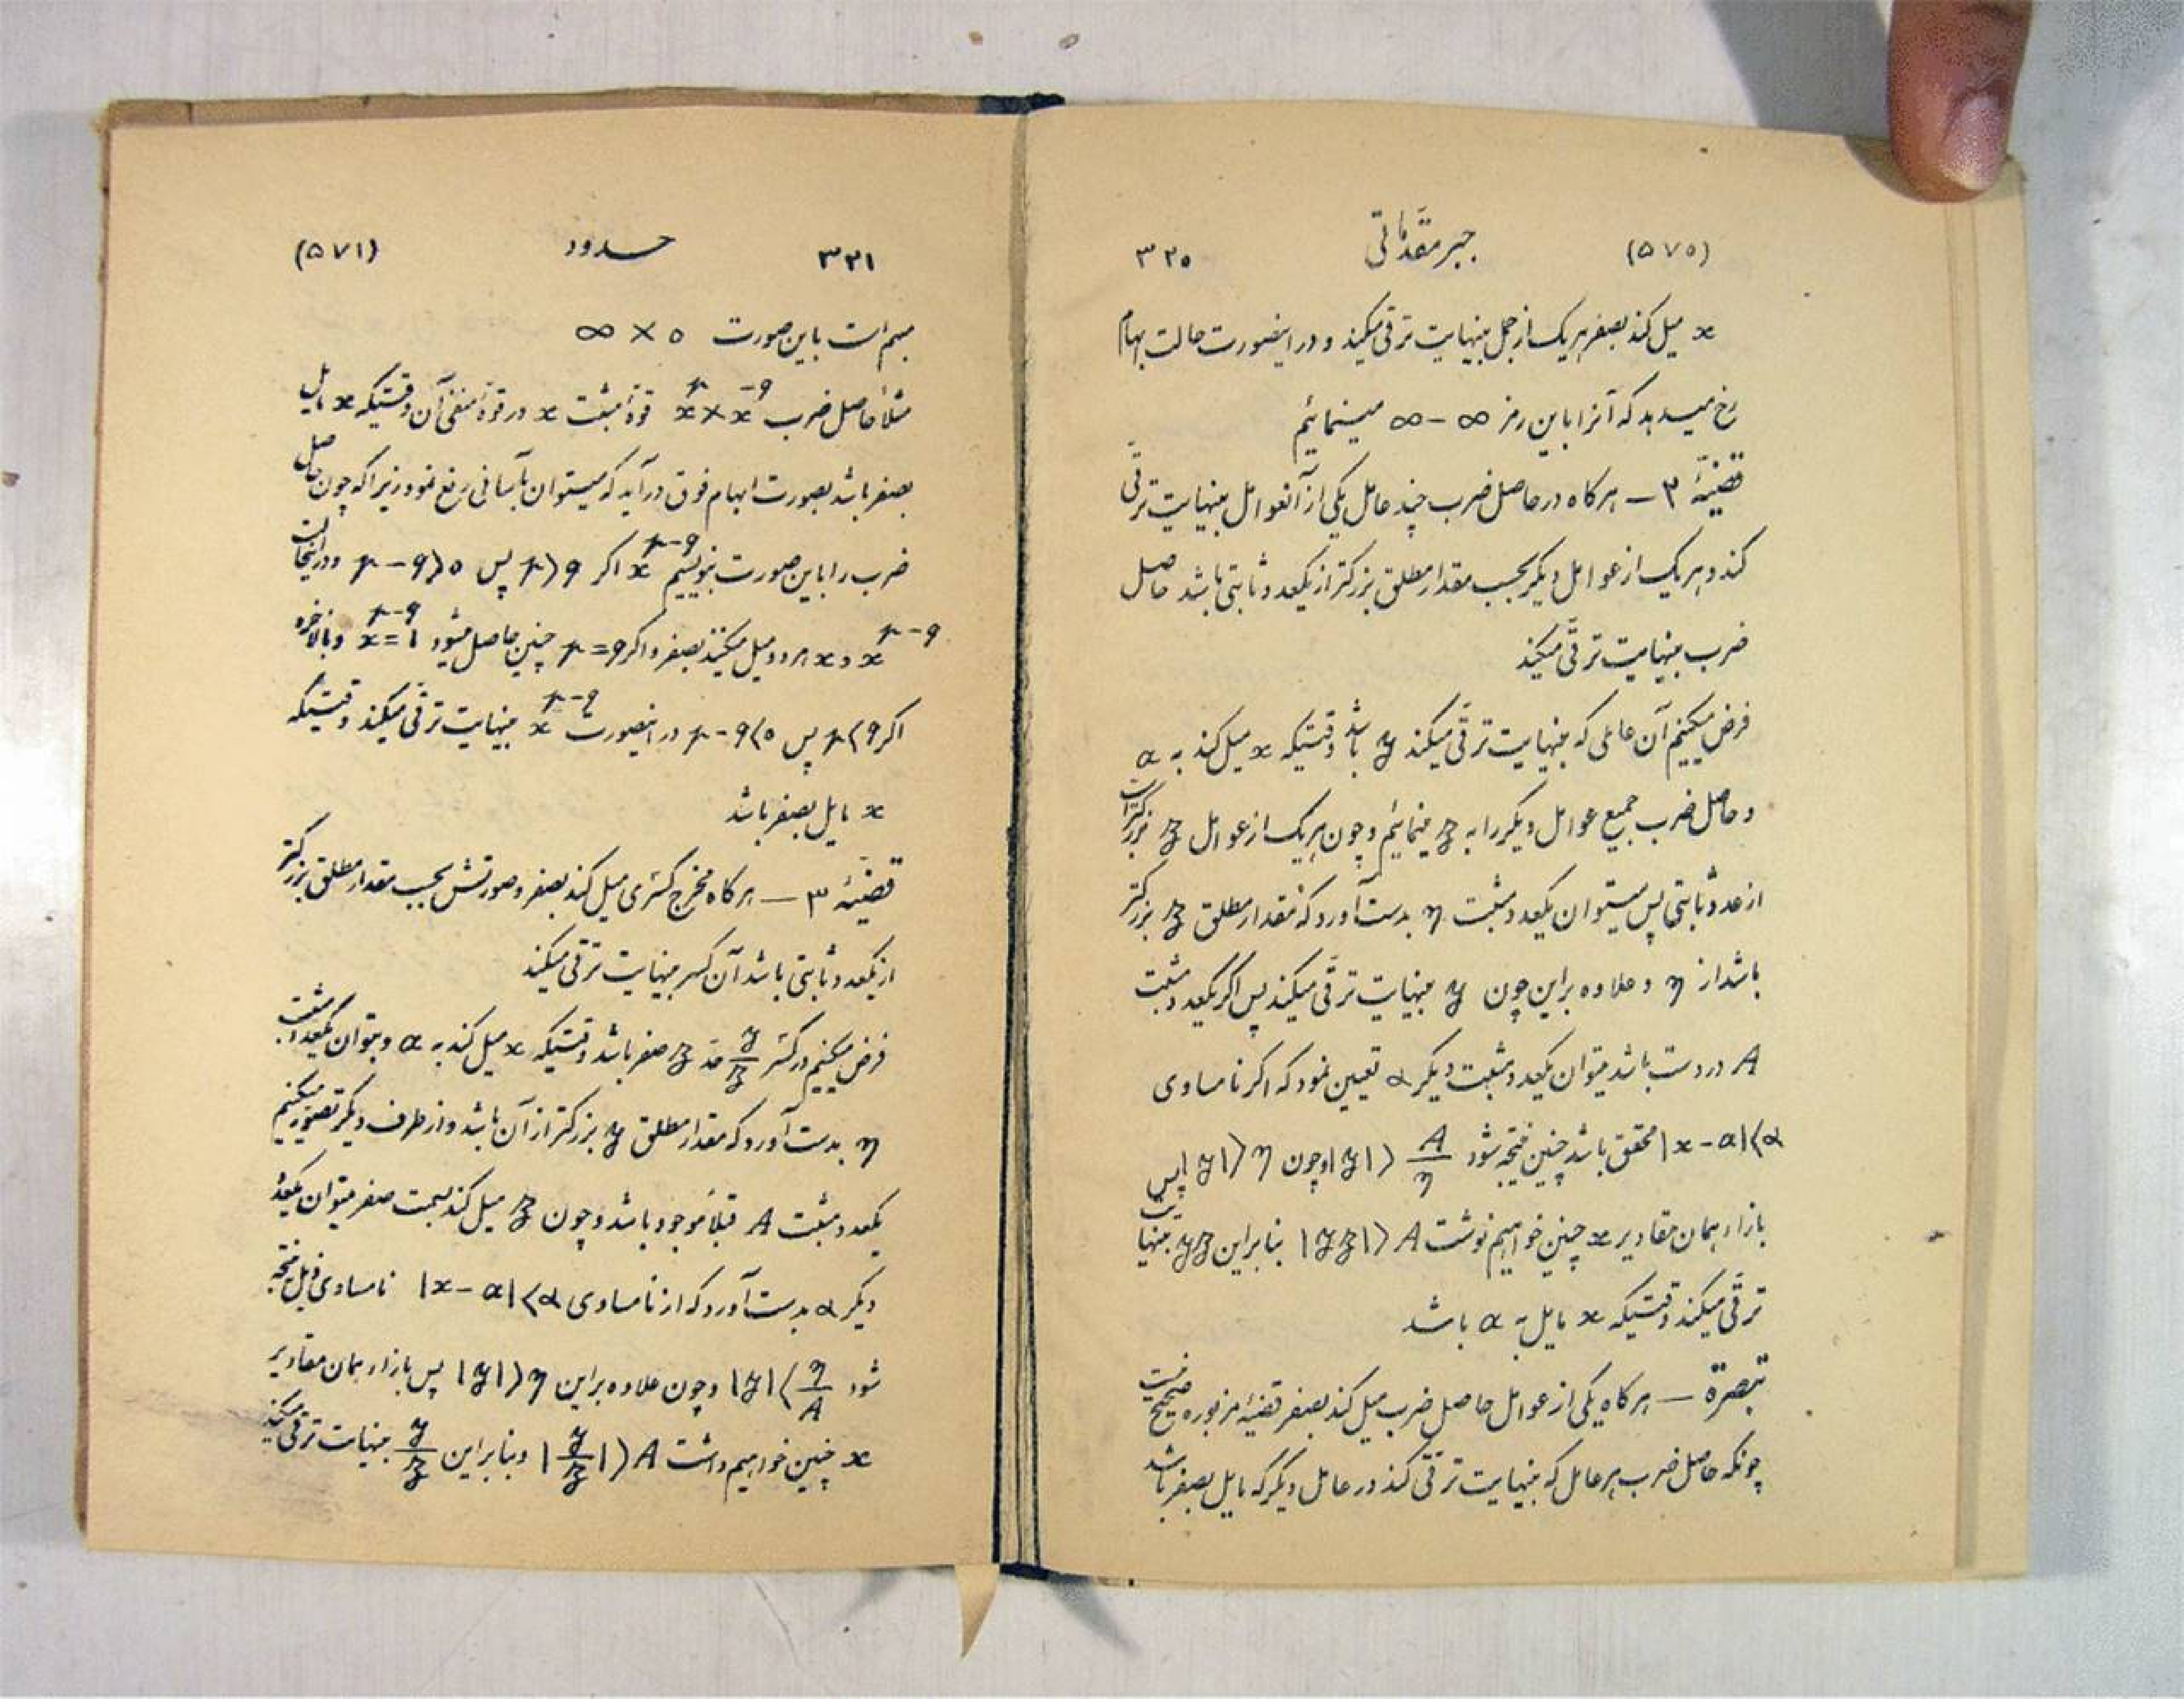 (۵۷۰) جبر مقدّماتی ۳۲۰
x میل کند بصفر هر یک از جمل بینهایت ترقی میکند و در اینصورت حالت ابهام
رخ میدهد که آنرا باین رمز ∞ - ∞ مینمائیم
قضیّهٔ ۲ — هرکاه در حاصل ضرب چند عامل یکی از آنعوامل بینهایت ترقّی
کند و هر یک از عوامل دیکر بحسب مقدار مطلق بزرکتر از یکعدد ثابتی باشد حاصل
ضرب بینهایت ترقّی میکند
فرض میکنیم آن عاملی که بینهایت ترقّی میکند y باشد وقتیکه x میل کند به a
و حاصل ضرب جمیع عوامل دیکر را به z مینمائیم و چون هر یک از عوامل z بزرکتر است
از عدد ثابتی پس میتوان یکعدد مثبت η بدست آورد که مقدار مطلق z بزرکتر
باشد از η و علاوه بر این چون y بینهایت ترقّی میکند پس اکر یکعدد مثبت
A در دست باشد میتوان یکعدد مثبت دیکر α تعیین نمود که اکر نامساوی
|x - a|<α محقق باشد چنین نتیجه شود |y|>A/η و چون |z|>η پس
بازاء همان مقادیر x چنین خواهیم نوشت |yz|>A بنابراین yz بینهایت
ترقّی میکند وقتیکه x مایل به a باشد
تبصرة — هرکاه یکی از عوامل حاصل ضرب میل کند بصفر قضیّه مزبوره صحیح نیست
چونکه حاصل ضرب هر عامل که بینهایت ترقّی کند در عامل دیکر که مایل بصفر باشد
۳۲۱ حدود (۵۷۱)
مبهم است باین صورت ∞ × ۰
مثلاً حاصل ضرب x^p × x^-q قوهٔ مثبت x در قوهٔ منفی آن وقتیکه x مایل
بصفر باشد بصورت ابهام فوق درآید که میتوان بآسانی رفع نمود زیرا که چون حاصل
ضرب را باین صورت بنویسیم x^p-q اکر p>q پس p-q>۰ و در اینحالت
x^p-q و x هر دو میل میکنند بصفر و اکر p=q چنین حاصل میشود x^p-q=1 و بالاخره
اکر p<q پس p-q<۰ در اینصورت x^p-q بینهایت ترقّی میکند وقتیکه
x مایل بصفر باشد
قضیّهٔ ۳ — هرکاه مخرج کسری میل کند بصفر و صورتش بحسب مقدار مطلق بزرکتر
از یکعدد ثابتی باشد آن کسر بینهایت ترقی میکند
فرض میکنیم در کسر y/z حدّ z صفر باشد وقتیکه x میل کند به a و بتوان یکعدد مثبت
η بدست آورد که مقدار مطلق y بزرکتر از آن باشد و از طرف دیکر تصوّر میکنیم
یکعدد مثبت A قبلاً موجود باشد و چون z میل کند بسمت صفر میتوان یکعدد
دیکر α بدست آورد که از نامساوی |x - a|<α نامساوی ذیل نتیجه
شود |z|<η/A و چون علاوه بر این |y|>η پس بازاء همان مقادیر
x چنین خواهیم داشت |y/z|>A و بنابراین y/z بینهایت ترقی میکند